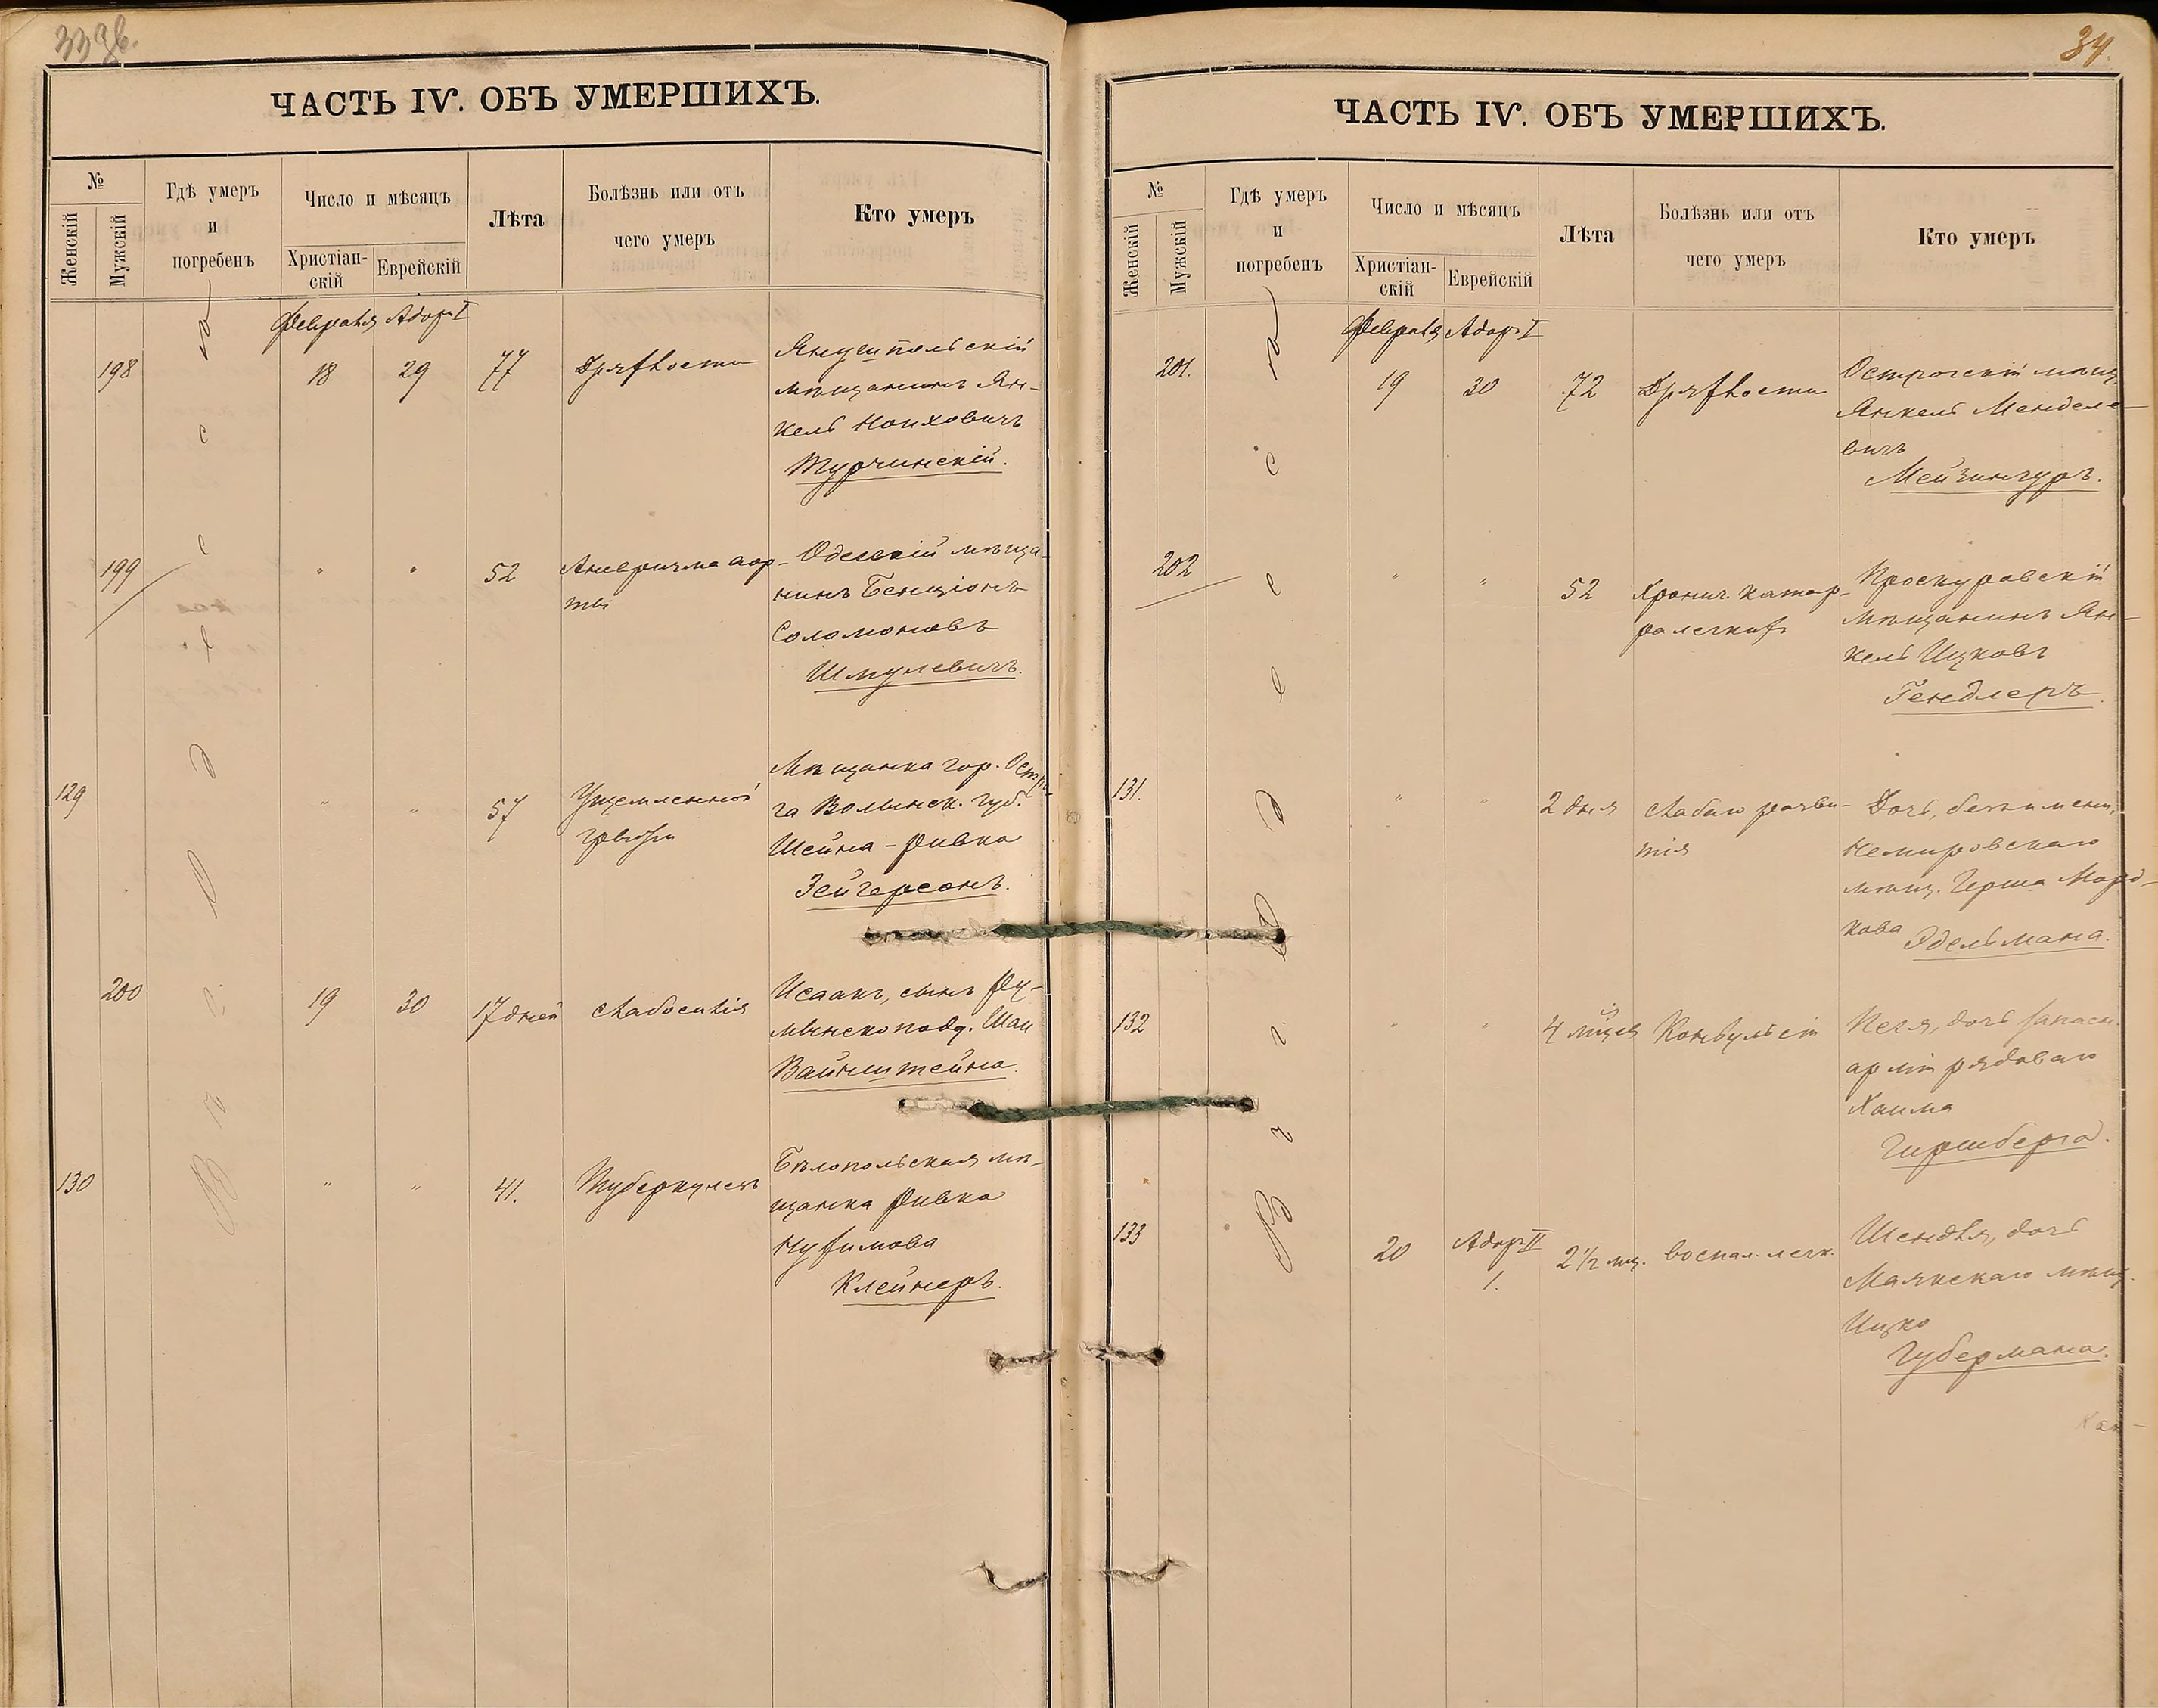 33 об.
ЧАСТЬ IV. ОБЪ УМЕРШИХЪ.
№
Женскій
Мужскій
Гдѣ умеръ
и
погребенъ
Число и мѣсяцъ
Христіан-
скій
Еврейскій
Лѣта
Болѣзнь или отъ
чего умеръ
Кто умеръ
Февраля Адаръ I
198
18
29
77
Дряхлости
Янушпольскій
мѣщанинъ Ян-
кель Нонховичъ
Турчинскій.
199
"
"
52
Аневризма аор-
ты
Одесскій мѣща-
нинъ Бенціонъ
Соломоновъ
Шмулевичъ.
129
"
"
57
Ущемленной
грыжи
Мѣщанка гор. Остро-
га Волынск. губ.
Шейна-Ривка
Зейгерсонъ.
200
19
30
17 дней
слабосилія
Исаакъ, сынъ Ру-
мынскоподд. Шаи
Вайнштейна.
130
"
"
41.
Туберкулезъ
Бѣлопольская мѣ-
щанка Ривка
Нухимова
Клейнеръ.
въ г. Одесса
34.
ЧАСТЬ IV. ОБЪ УМЕРШИХЪ.
№
Женскій
Мужскій
Гдѣ умеръ
и
погребенъ
Число и мѣсяцъ
Христіан-
скій
Еврейскій
Лѣта
Болѣзнь или отъ
чего умеръ
Кто умеръ
Февраля Адаръ I
201.
19
30
72
Дряхлости
Острогскій мѣщ.
Янкель Менделе-
вичъ
Мейзингуръ.
202
"
"
52
Хронич. катар-
ра легкихъ
Проскуровскій
мѣщанинъ Ян-
кель Ицковъ
Гендлеръ.
131.
"
"
2 дня
слабаго разви-
тія
Дочь, безъимен.,
Немировскаго
мѣщ. Герша Морд-
кова Эдельмана.
132
"
"
4 мѣсяц
Конвульсіи
Песя, дочь запасн.
арміи рядоваго
Хаима
Гиршберга.
133
20
Адаръ II
1.
2 1/2 мѣс.
воспал. легк.
Шендля, дочь
Маякскаго мѣщ.
Ицко
Губермана.